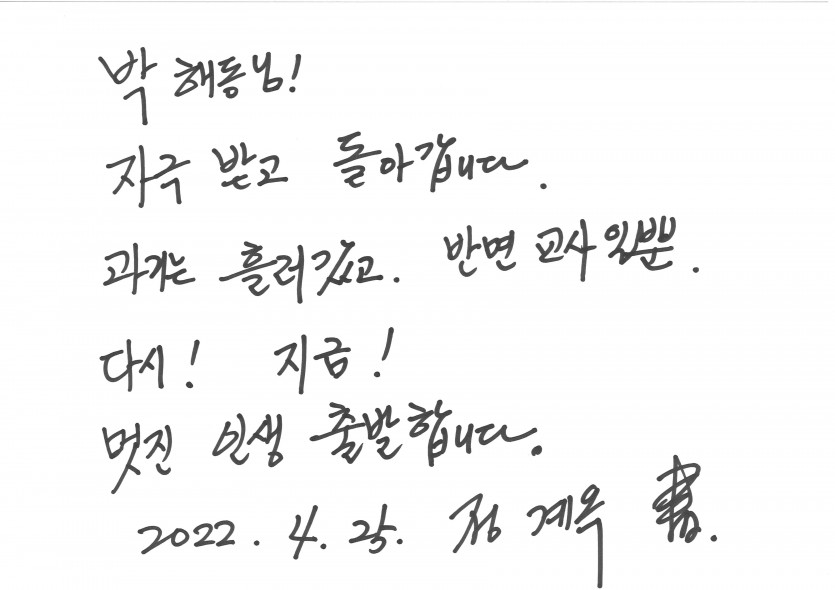 박 해동님!
자극 받고 돌아갑니다.
과거는 흘러갔고. 반면 교사일뿐.
다시! 지금!
멋진 인생 출발합니다.
2022. 4. 25. 정 계옥 書.